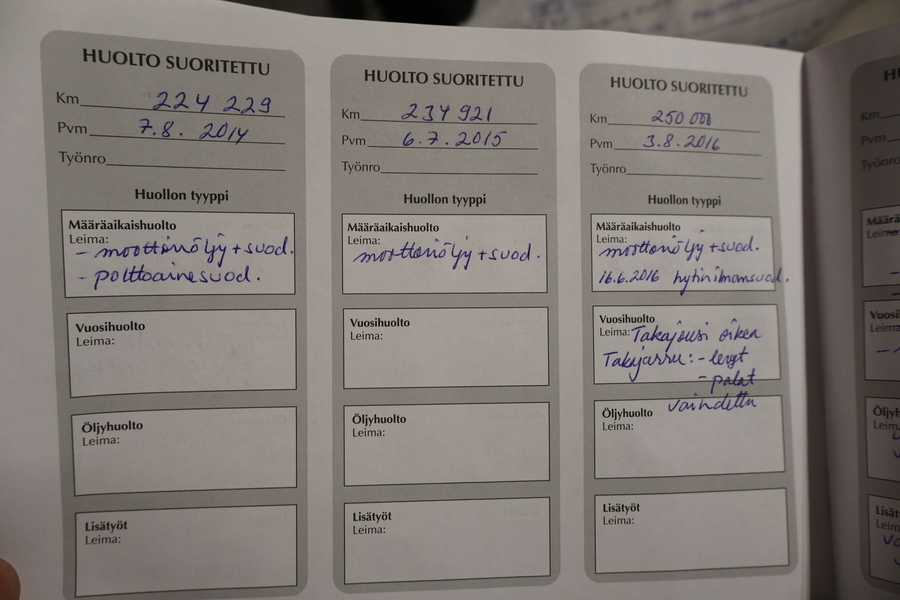 HUOLTO SUORITETTU
Km 224 229
Pvm 7.8. 2014
Työnro
Huollon tyyppi
Määräaikaishuolto
Leima:
- moottoriöljy + suod.
- polttoainesuod.
Vuosihuolto
Leima:
Öljyhuolto
Leima:
Lisätyöt
Leima:
HUOLTO SUORITETTU
Km 234 921
Pvm 6.7.2015
Työnro
Huollon tyyppi
Määräaikaishuolto
Leima:
moottoriöljy + suod.
Vuosihuolto
Leima:
Öljyhuolto
Leima:
Lisätyöt
Leima:
HUOLTO SUORITETTU
Km 250 000
Pvm 3.8.2016
Työnro
Huollon tyyppi
Määräaikaishuolto
Leima:
moottoriöljy + suod.
16.6.2016 hytin ilmansuod.
Vuosihuolto
Leima: Takajousi oikea
Takajarru: - levyt
- palat
vaihdettu
Öljyhuolto
Leima:
Lisätyöt
Leima:
Km
Pvm
Työnro